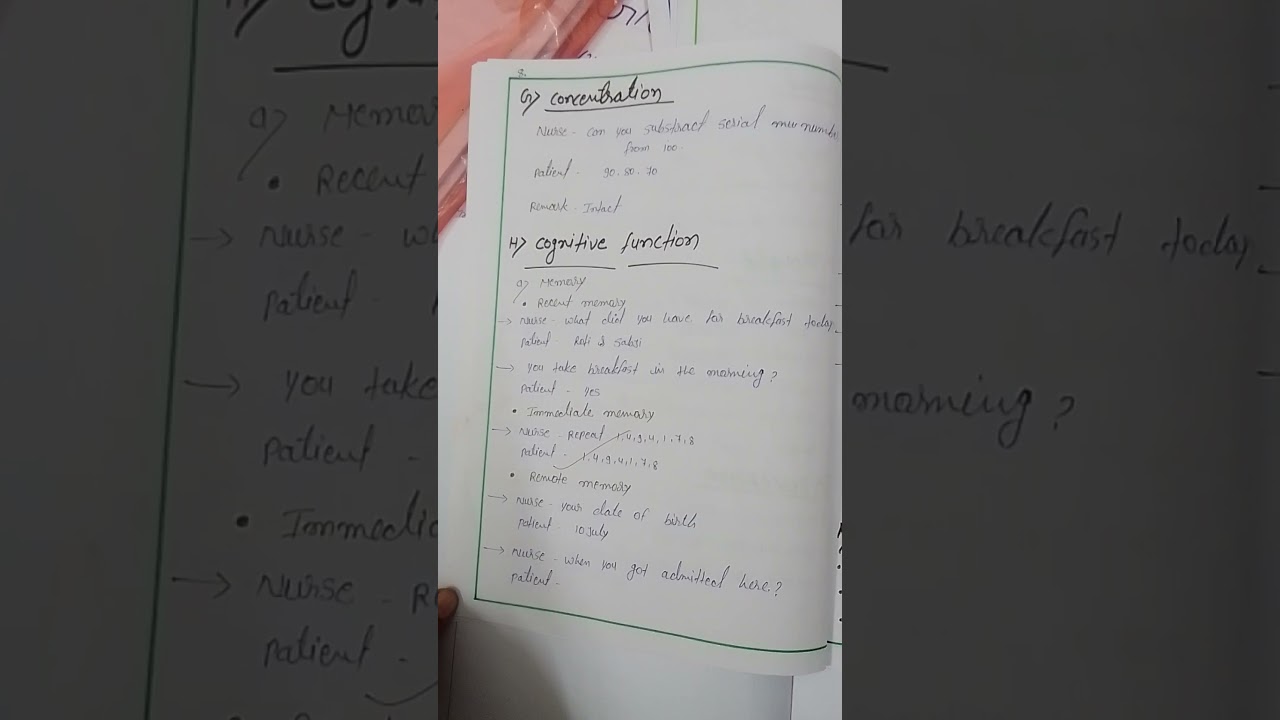 8.
G) concentration
Nurse - can you substract serial
from 100.
Patient - 90. 80. 70
Remark - Intact
H) cognitive function
a) Memory
• Recent memory
→ Nurse - what did you have for breakfast today
Patient - Roti & sabzi
→ you take breakfast in the morning?
Patient - yes
• Immediate memory
→ Nurse - Repeat 1,4,9,4,1,7,8
Patient - 1,4,9,4,1,7,8
• Remote memory
→ Nurse - your date of birth
Patient - 10 July
→ Nurse - when you got admitted here.?
Patient -